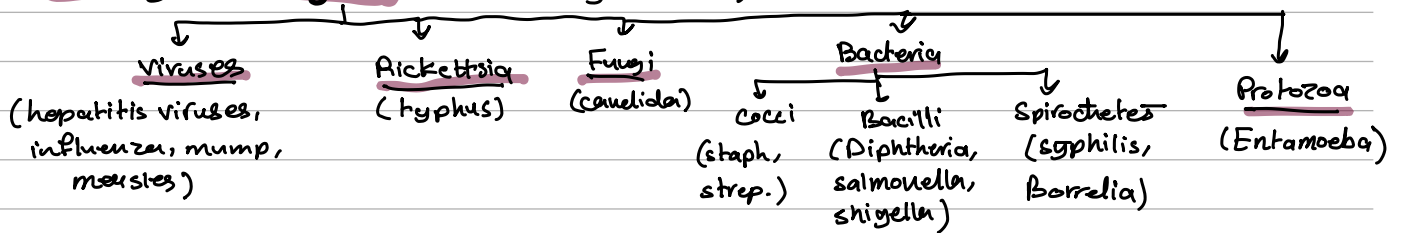 Viruses
(hepatitis viruses,
influenza, mump,
measles)
Rickettsia
(typhus)
Fungi
(candida)
Bacteria
Cocci
(staph,
strep.)
Bacilli
(Diphtheria,
salmonella,
shigella)
Spirochetes
(syphilis,
Borrelia)
Protozoa
(Entamoeba)